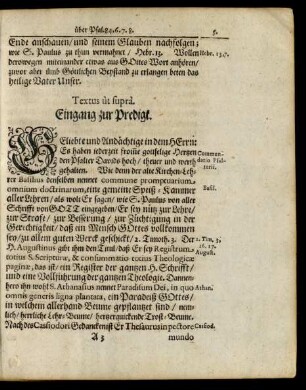 über Psal.84.6.7.8. 5.
Ende anschauen/ und seinem Glauben nachfolgen;
wie S. Paulus zu thun vermahnet / Hebr. 13. Wollen Hebr. 13, 7.
derowegen miteinander etwas aus GOttes Wort anhören/
zuvor aber umb Göttlichen Beystand zu erlangen beten das
heilige Vater Unser.
Textus ût suprà.
Eingang zur Predigt.
GEliebte und Andächtige in dem HErrn:
Es haben jederzeit fromme gottselige Hertzen Commen-
den Psalter Davids hoch / theuer und werth datio Psal-
gehalten. Wie denn der alte Kirchen-Leh- terii.
rer Basilius denselben nennet commune promptuarium
omnium doctrinarum, eine gemeine Speiß-Kammer Basil.
aller Lehren/ als wolt Er sagen/ wie S. Paulus von aller
Schrifft von GOTT eingegeben/ Er sey nütz zur Lehre/
zur Straff/ zur Besserung / zur Züchtigung in der
Gerechtigkeit/ daß ein Mensch GOttes vollkommen
sey/ zu allem guten Werck geschickt/ 2. Timoth. 3. Der 2. Tim, 3,
H. Augustinus gibt ihm den Titul/ daß Er sey Registrum 16. 17.
totius S. Scripturæ, & consummatio totius Theologicæ August.
paginæ, das ist/ ein Register der gantzen H. Schrifft/
und eine Vollführung der gantzen Theologie. Dannen-
hero ihn wohl S. Athanasius nennet Paradisum Dei, in quo Athan.
omnis generis ligna plantata, ein Paradeiß GOttes/
in welchem allerhand Beume gepflantzet sind / nem-
lich/ herrliche Lehr-Beume/ hertzerquickende Trost-Beume.
Nach des Cassiodori Gedancken ist Er Thesaurus in pectore Cassiod.
A 3 mundo